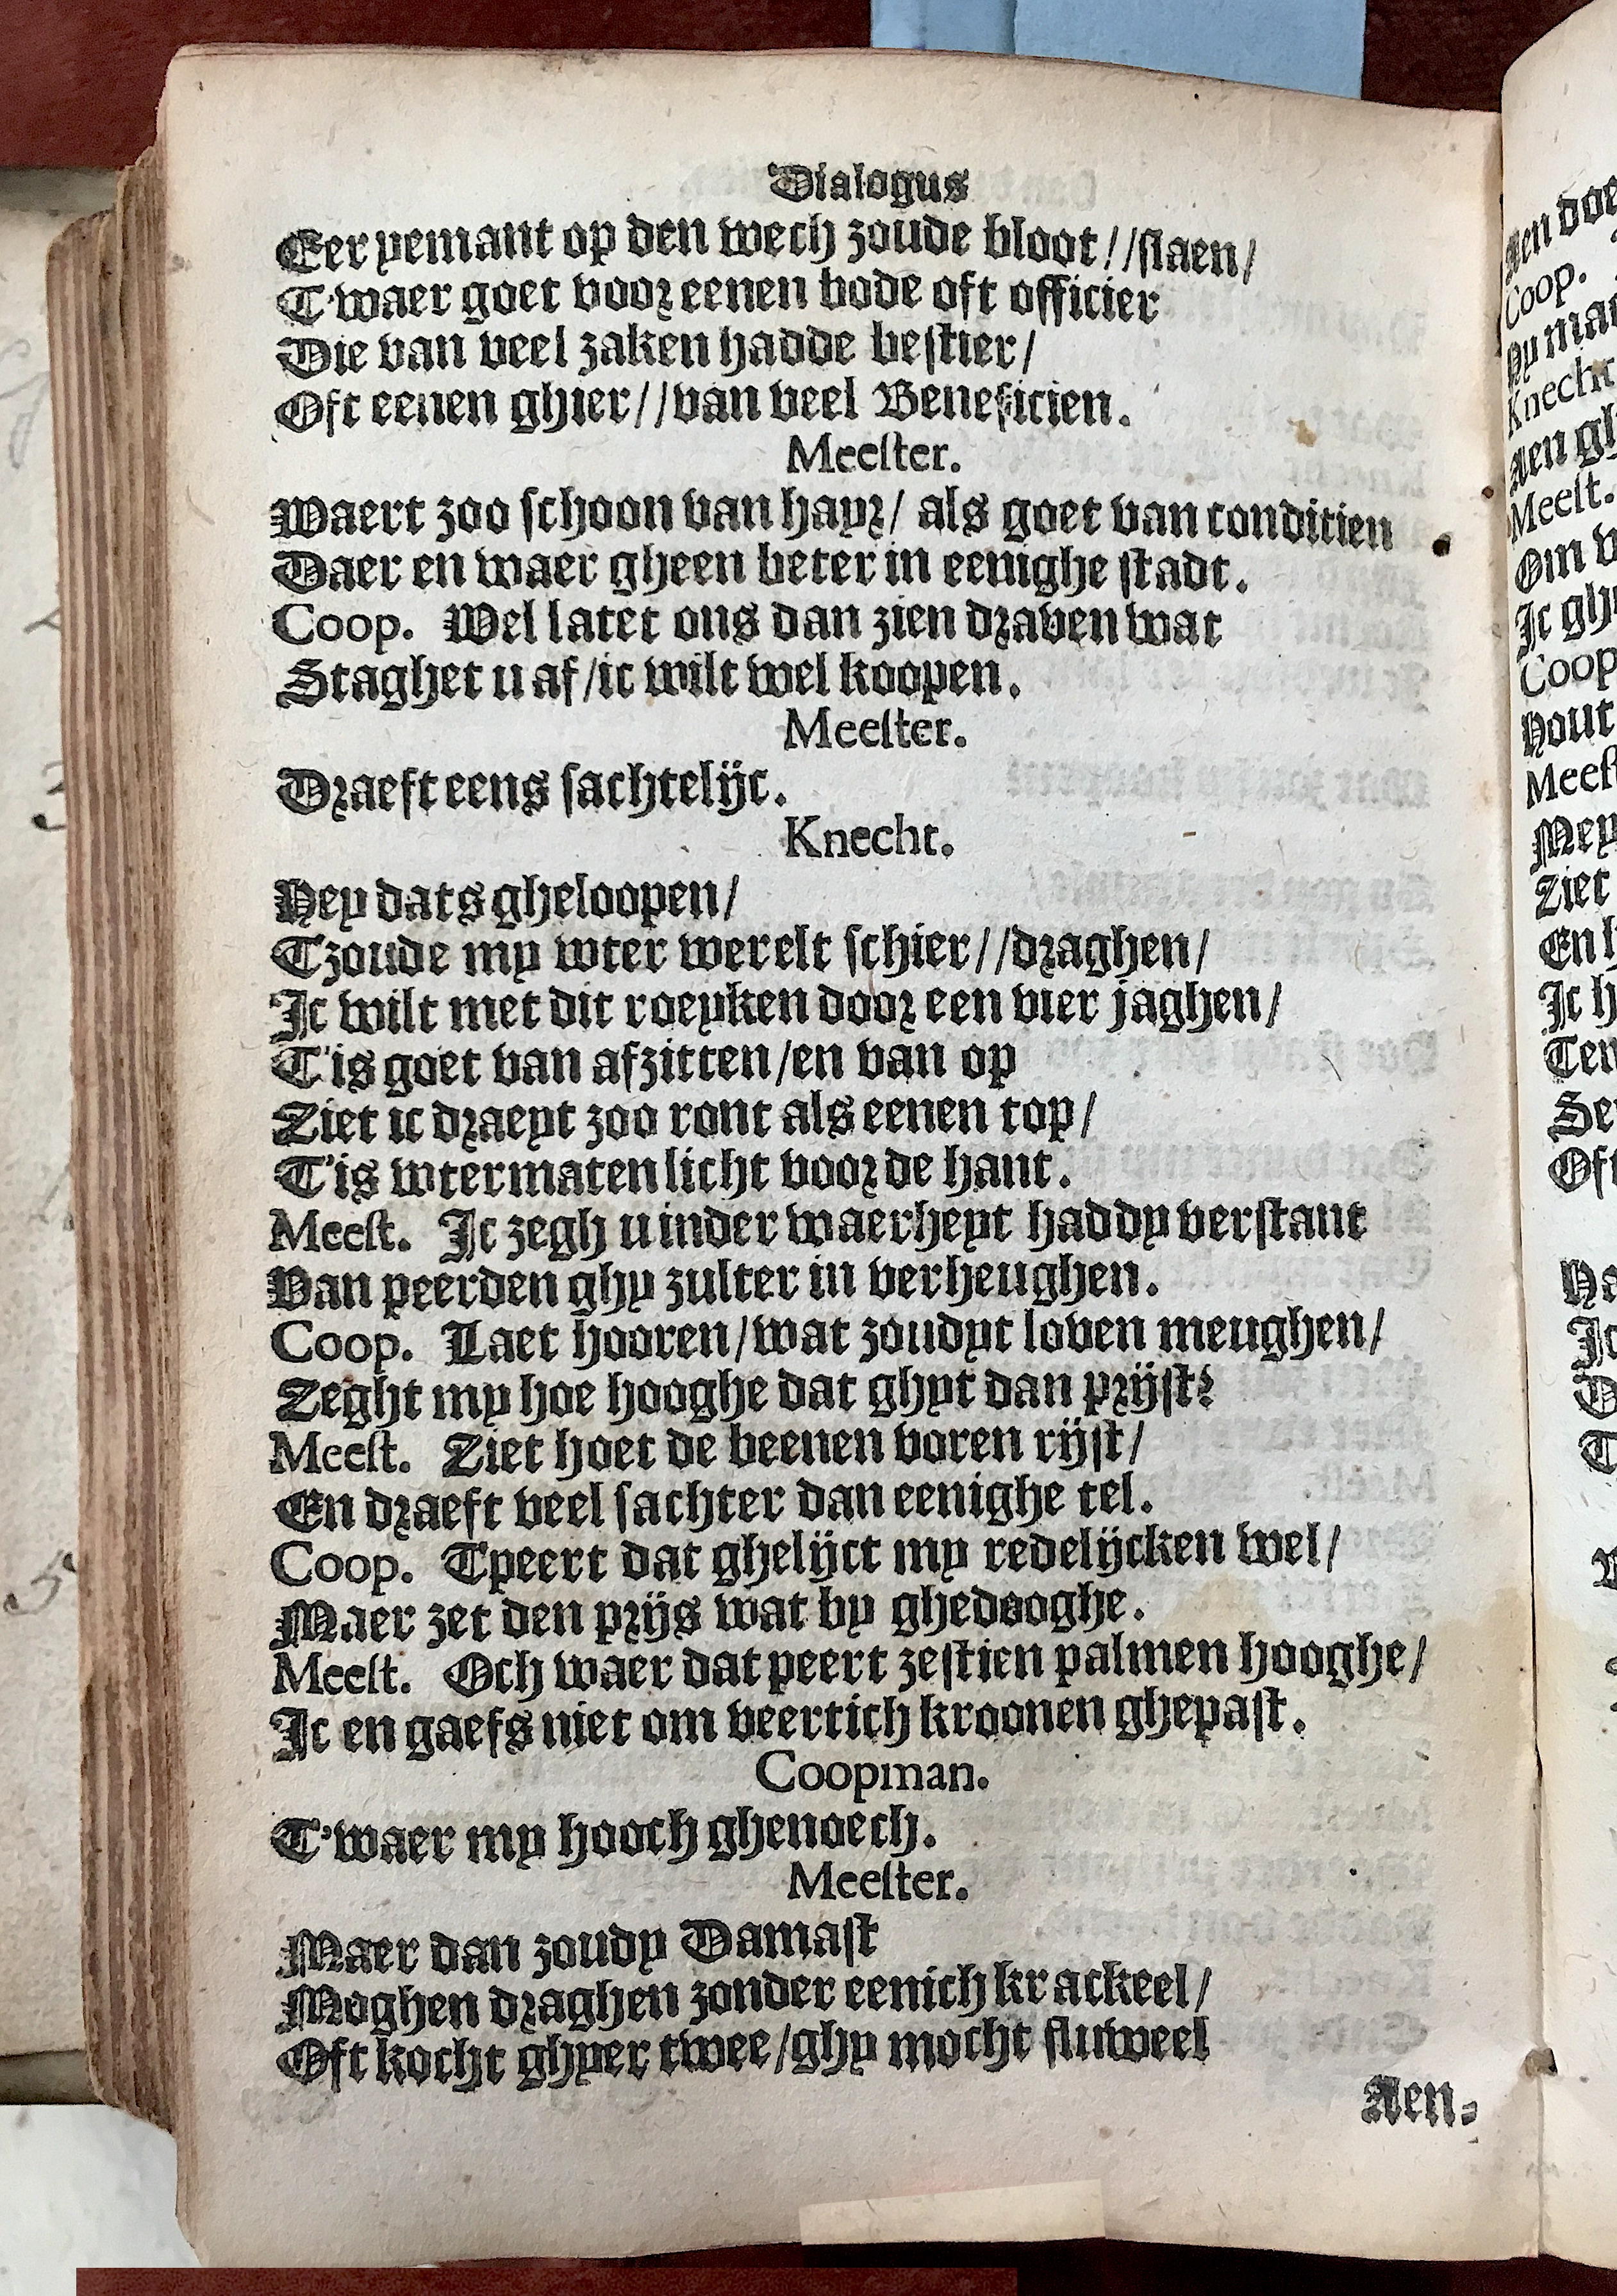 Dialogus
Eer yemant op den wech zoude bloot//slaen/
T'waer goet voor eenen bode oft officier
Die van veel zaken hadde bestier/
Oft eenen ghier//van veel Beneficien.
Meester.
Waert zoo schoon van hayr/ als goet van conditien
Daer en waer gheen beter in eenighe stadt.
Coop. Wel latet ons dan zien draven wat
Staghet u af/ic wilt wel koopen.
Meester.
Draeft eens sachtelijc.
Knecht.
Hey dats gheloopen/
Tzoude my wter werelt schier//draghen/
Ic wilt met dit roeyken door een vier jaghen/
T'is goet van afzitten/en van op
Ziet ic draeyt zoo ront als eenen top/
T'is wtermaten licht voor de hant.
Meest. Ic zegh u inder waerheyt haddy verstant
Van peerden ghy zulter in verheughen.
Coop. Laet hooren/wat zoudyt loven meughen/
Zeght my hoe hooghe dat ghyt dan prijst?
Meest. Ziet hoet de beenen voren rijst/
En draeft veel sachter dan eenighe tel.
Coop. Tpeert dat ghelijct my redelijcken wel/
Maer zet den prijs wat by ghedooghe.
Meest. Och waer dat peert zestien palmen hooghe/
Ic en gaefs niet om veertich kroonen ghepast.
Coopman.
T'waer my hooch ghenoech.
Meester.
Maer dan zoudy Damast
Moghen draghen zonder eenich krackeel/
Oft kocht ghyer twee/ghy mocht fluweel
Aen-
Aen doe
Coop.
Hy ma
Knecht
Aen gh
Meest.
Om v
Ic gh
Coop
Hout
Meest
Mey
Ziet
En h
Ic h
Ten
Se
Oft